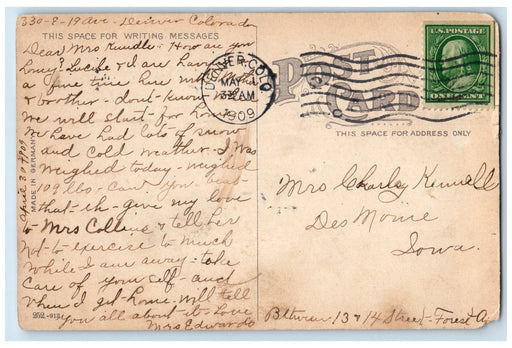 330-8-19 Ave - Denver Colorado
THIS SPACE FOR WRITING MESSAGES
Dear Mrs Kimdle - How are you
honey? Lucile & I are having
a fine time here with mother
& brother - dont know when
we will start for home
We have had lots of snow
and cold weather - I was
weighed today - weighed
109 lbs - Can you beat
that - eh - give my love
to Mrs Collins & tell her
not to exercise to much
while I am away - take
care of your self - and
When I get home - will tell
you all about it - Love
Mrs Edwards
April 30 1909
MADE IN GERMANY
252-913
DENVER, COLO.
MAY
3 30 AM
1909
POST
CARD
THIS SPACE FOR ADDRESS ONLY
U.S. POSTAGE
ONE CENT
Mrs Charly Kimdle
Des Moine
Iowa.
Between 13 & 14 Street - Forest A